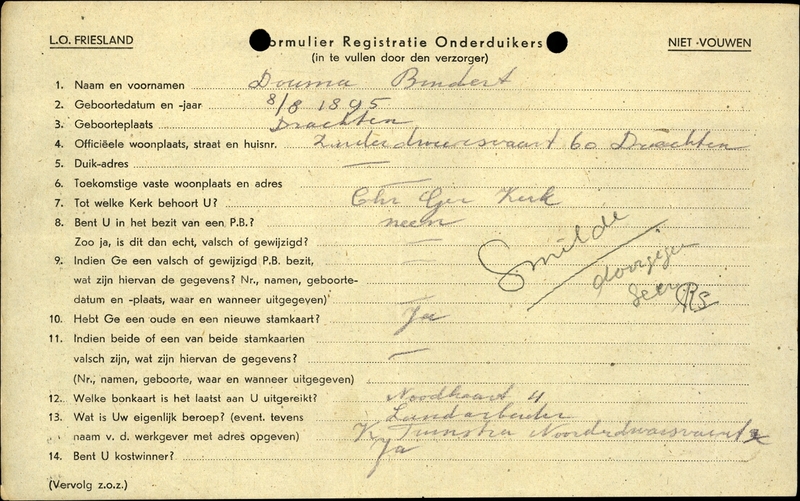 L.O. FRIESLAND
Formulier Registratie Onderduikers
NIET-VOUWEN
(in te vullen door den verzorger)
1. Naam en voornamen Douma Bindert
2. Geboortedatum en -jaar 8/8 1895
3. Geboorteplaats Drachten
4. Officiëele woonplaats, straat en huisnr. Zuiderdwarsvaart 60 Drachten
5. Duik-adres —
6. Toekomstige vaste woonplaats en adres —
7. Tot welke Kerk behoort U? Chr Ger Kerk
8. Bent U in het bezit van een P.B.? neen
Zoo ja, is dit dan echt, valsch of gewijzigd? —
9. Indien Ge een valsch of gewijzigd P.B. bezit, —
wat zijn hiervan de gegevens? Nr., namen, geboorte-
datum en -plaats, waar en wanneer uitgegeven) —
Smilde
RS
10. Hebt Ge een oude en een nieuwe stamkaart? Ja
11. Indien beide of een van beide stamkaarten
valsch zijn, wat zijn hiervan de gegevens? —
(Nr., namen, geboorte, waar en wanneer uitgegeven)
12. Welke bonkaart is het laatst aan U uitgereikt? Noodkaart 4
13. Wat is Uw eigenlijk beroep? (event. tevens Landarbeider
naam v. d. werkgever met adres opgeven) K. Tuinstra Noorderdwarsvaart
14. Bent U kostwinner? Ja
(Vervolg z.o.z.)